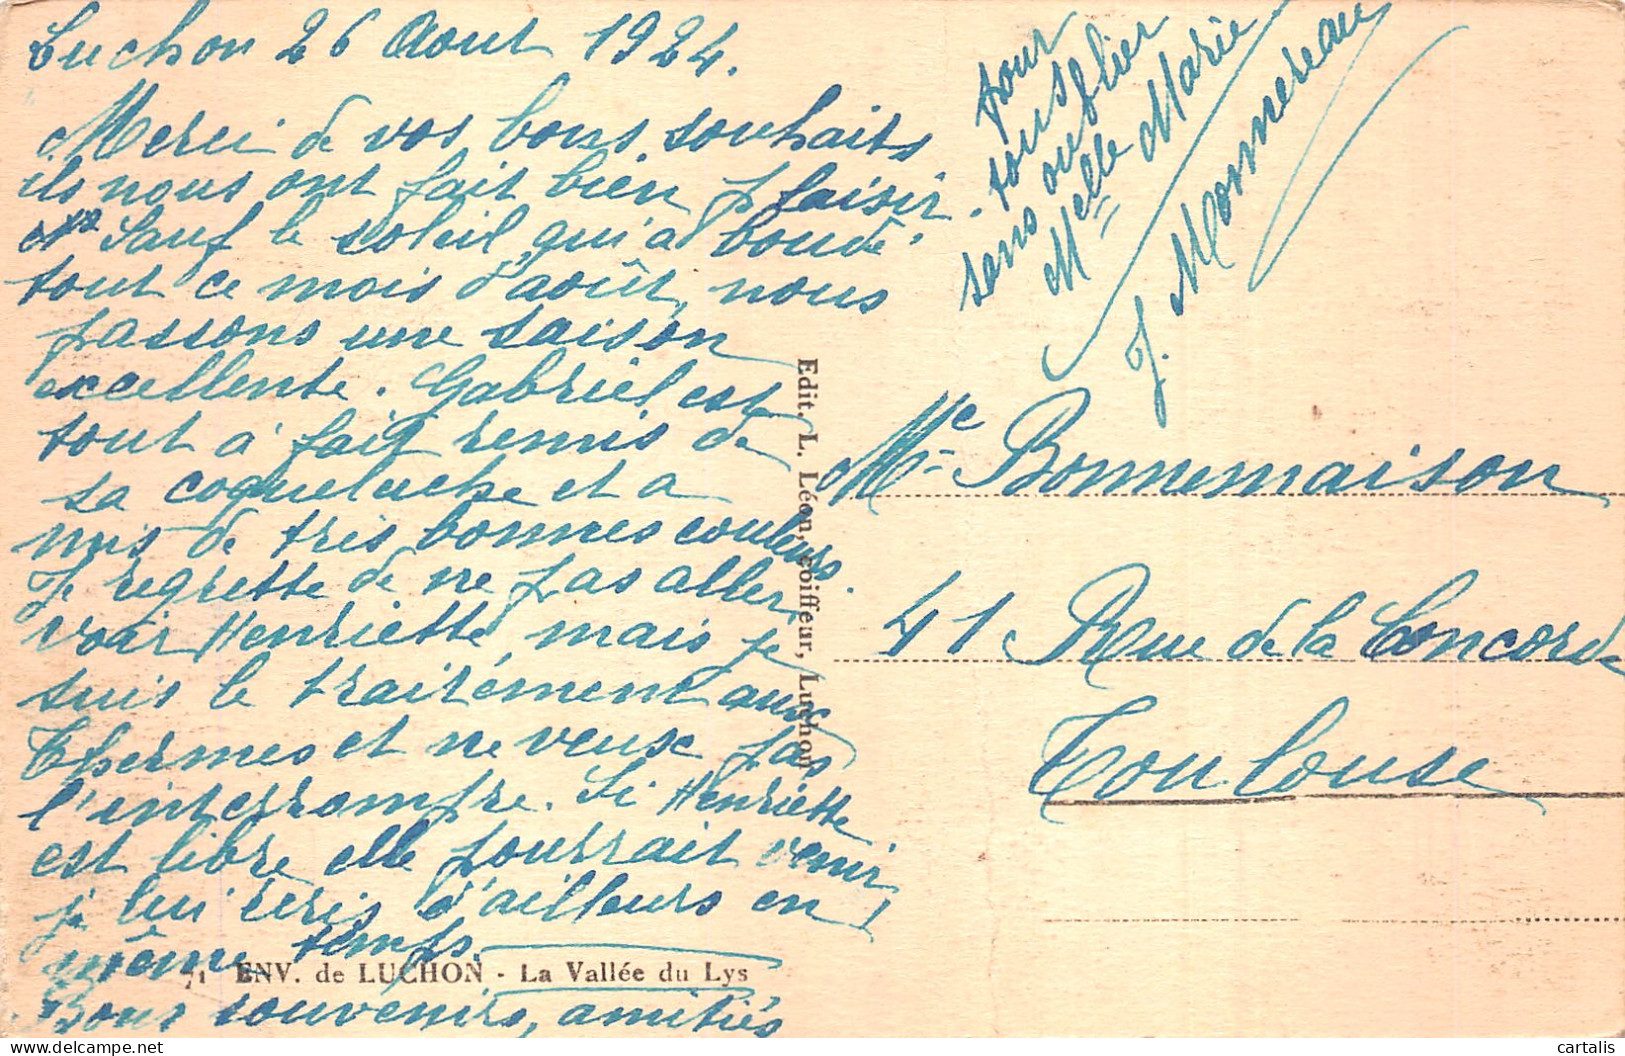 Luchon 26 Aout 1924.
Merci de vos bons souhaits
ils nous ont fait bien plaisir.
Sauf le soleil, qui a boudé
tout ce mois d'août, nous
passons une saison
excellente. Gabriel est
tout à fait remis de
sa coqueluche et a
mis de très bonnes couleurs.
Je regrette de ne pas aller
voir Henriette mais je
suis le traitement aux
Thermes et ne veux pas
l'interrompre. Si Henriette
est libre elle pourrait venir
je lui écris d'ailleurs en
même temps.
Bons souvenirs, amitiés
pour
tous
sans oublier
Melle Marie
J. Monnereau
Me Bonnemaison
41 Rue de la Concorde
Toulouse
Edit. L. Léon, coiffeur, Luchon
71 ENV. de LUCHON - La Vallée du Lys
cartalis
delcampe.net